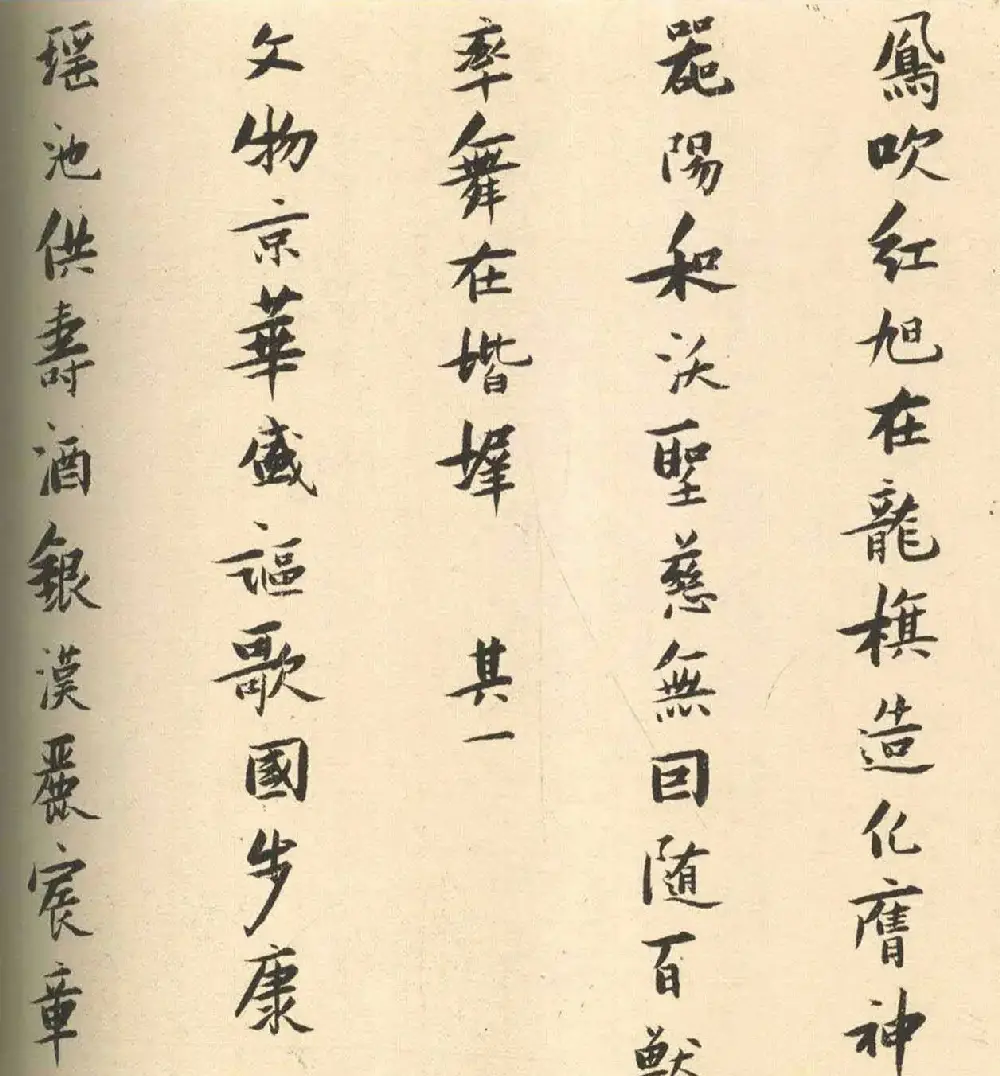 鳳吹紅旭在龍旗造化膺神
器陽和沃聖慈無因随百獸
率舞在堦墀 其一
文物京華盛謳歌國步康
瑶池供壽酒銀漢麗宸章